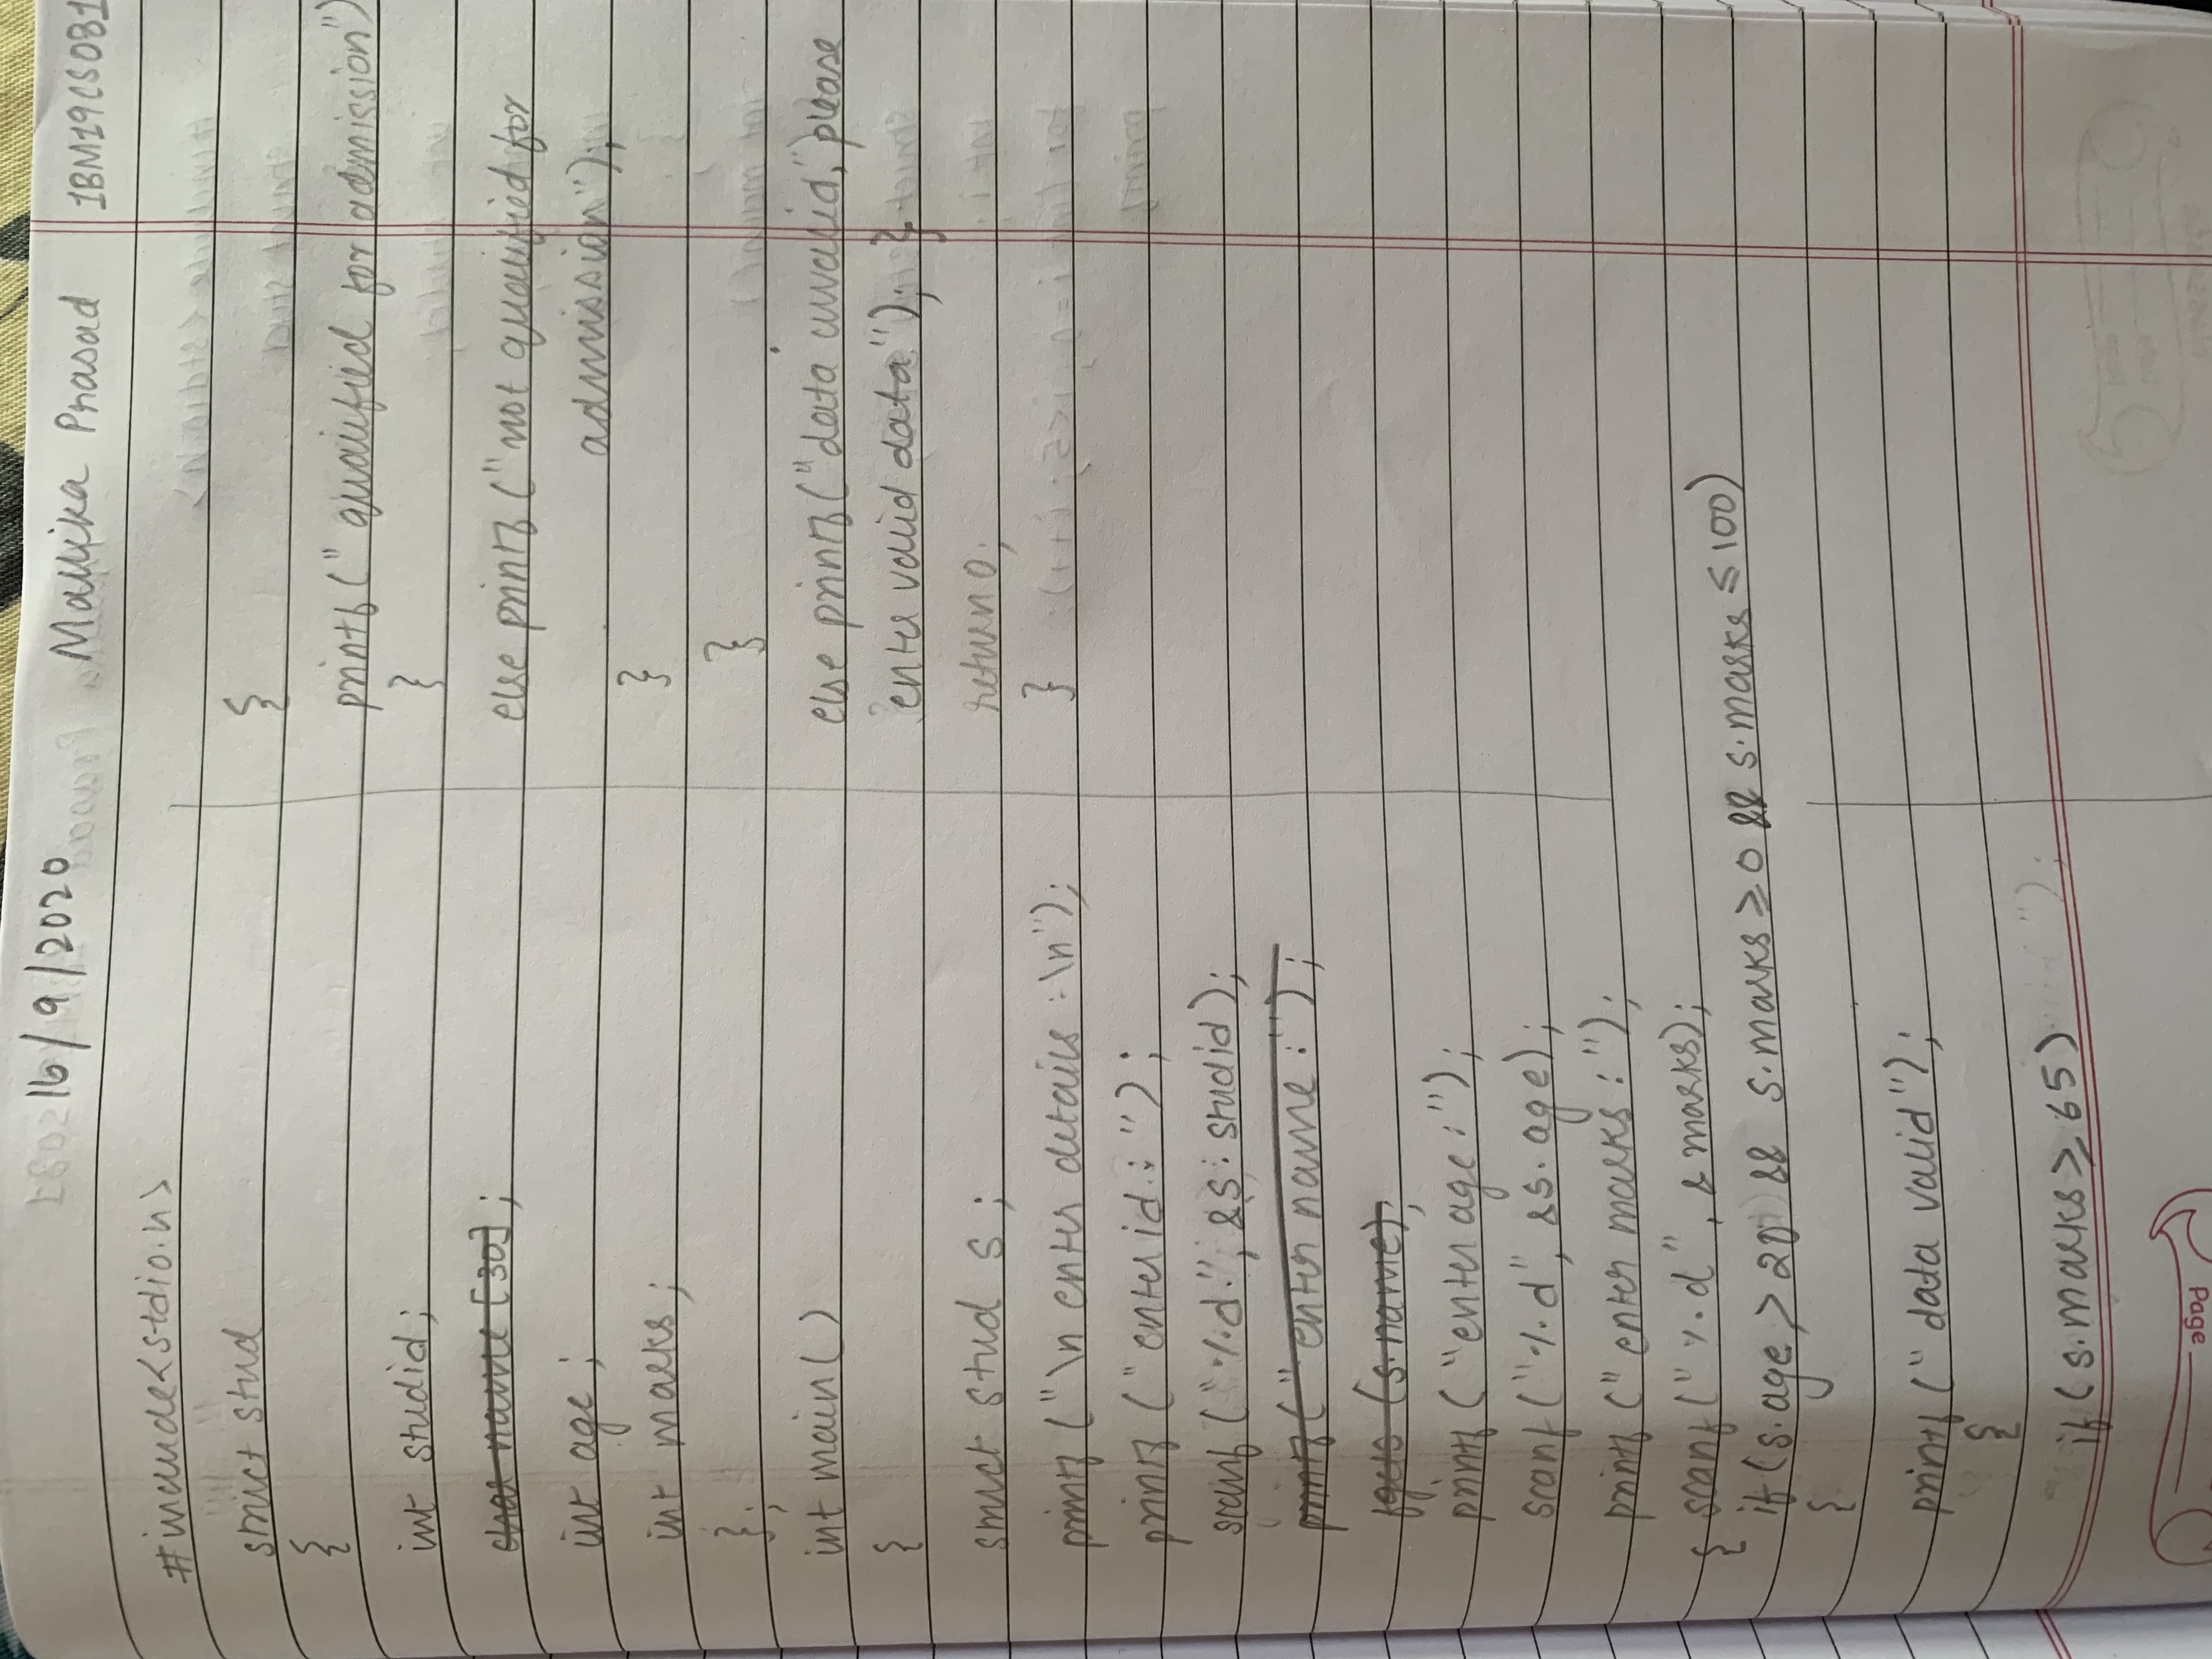 16/9/2020 Mallika Prasad 1BM19CS081
#include<stdio.h>
struct stud
{
int studid;
char name [30];
int age;
int marks;
};
int main()
{
struct stud s;
printf ("\n enter details :\n");
printf ("enter id : ");
scanf ("%d", &s. studid);
printf ("enter name :");
fgets (s.name);
printf ("enter age :");
scanf ("%d", &s. age);
printf (" enter marks : ");
{ scanf (" %d", & marks);
if (s.age > 20 && s.marks ≥ 0 && s.marks ≤ 100)
{
printf (" data valid");
{
if (s.marks ≥ 65)
{
printf (" qualified for admission")
}
else printf ("not qualified for
admission");
}
}
else printf ("data invalid," please
enter valid data"); }
return 0;
}
Page